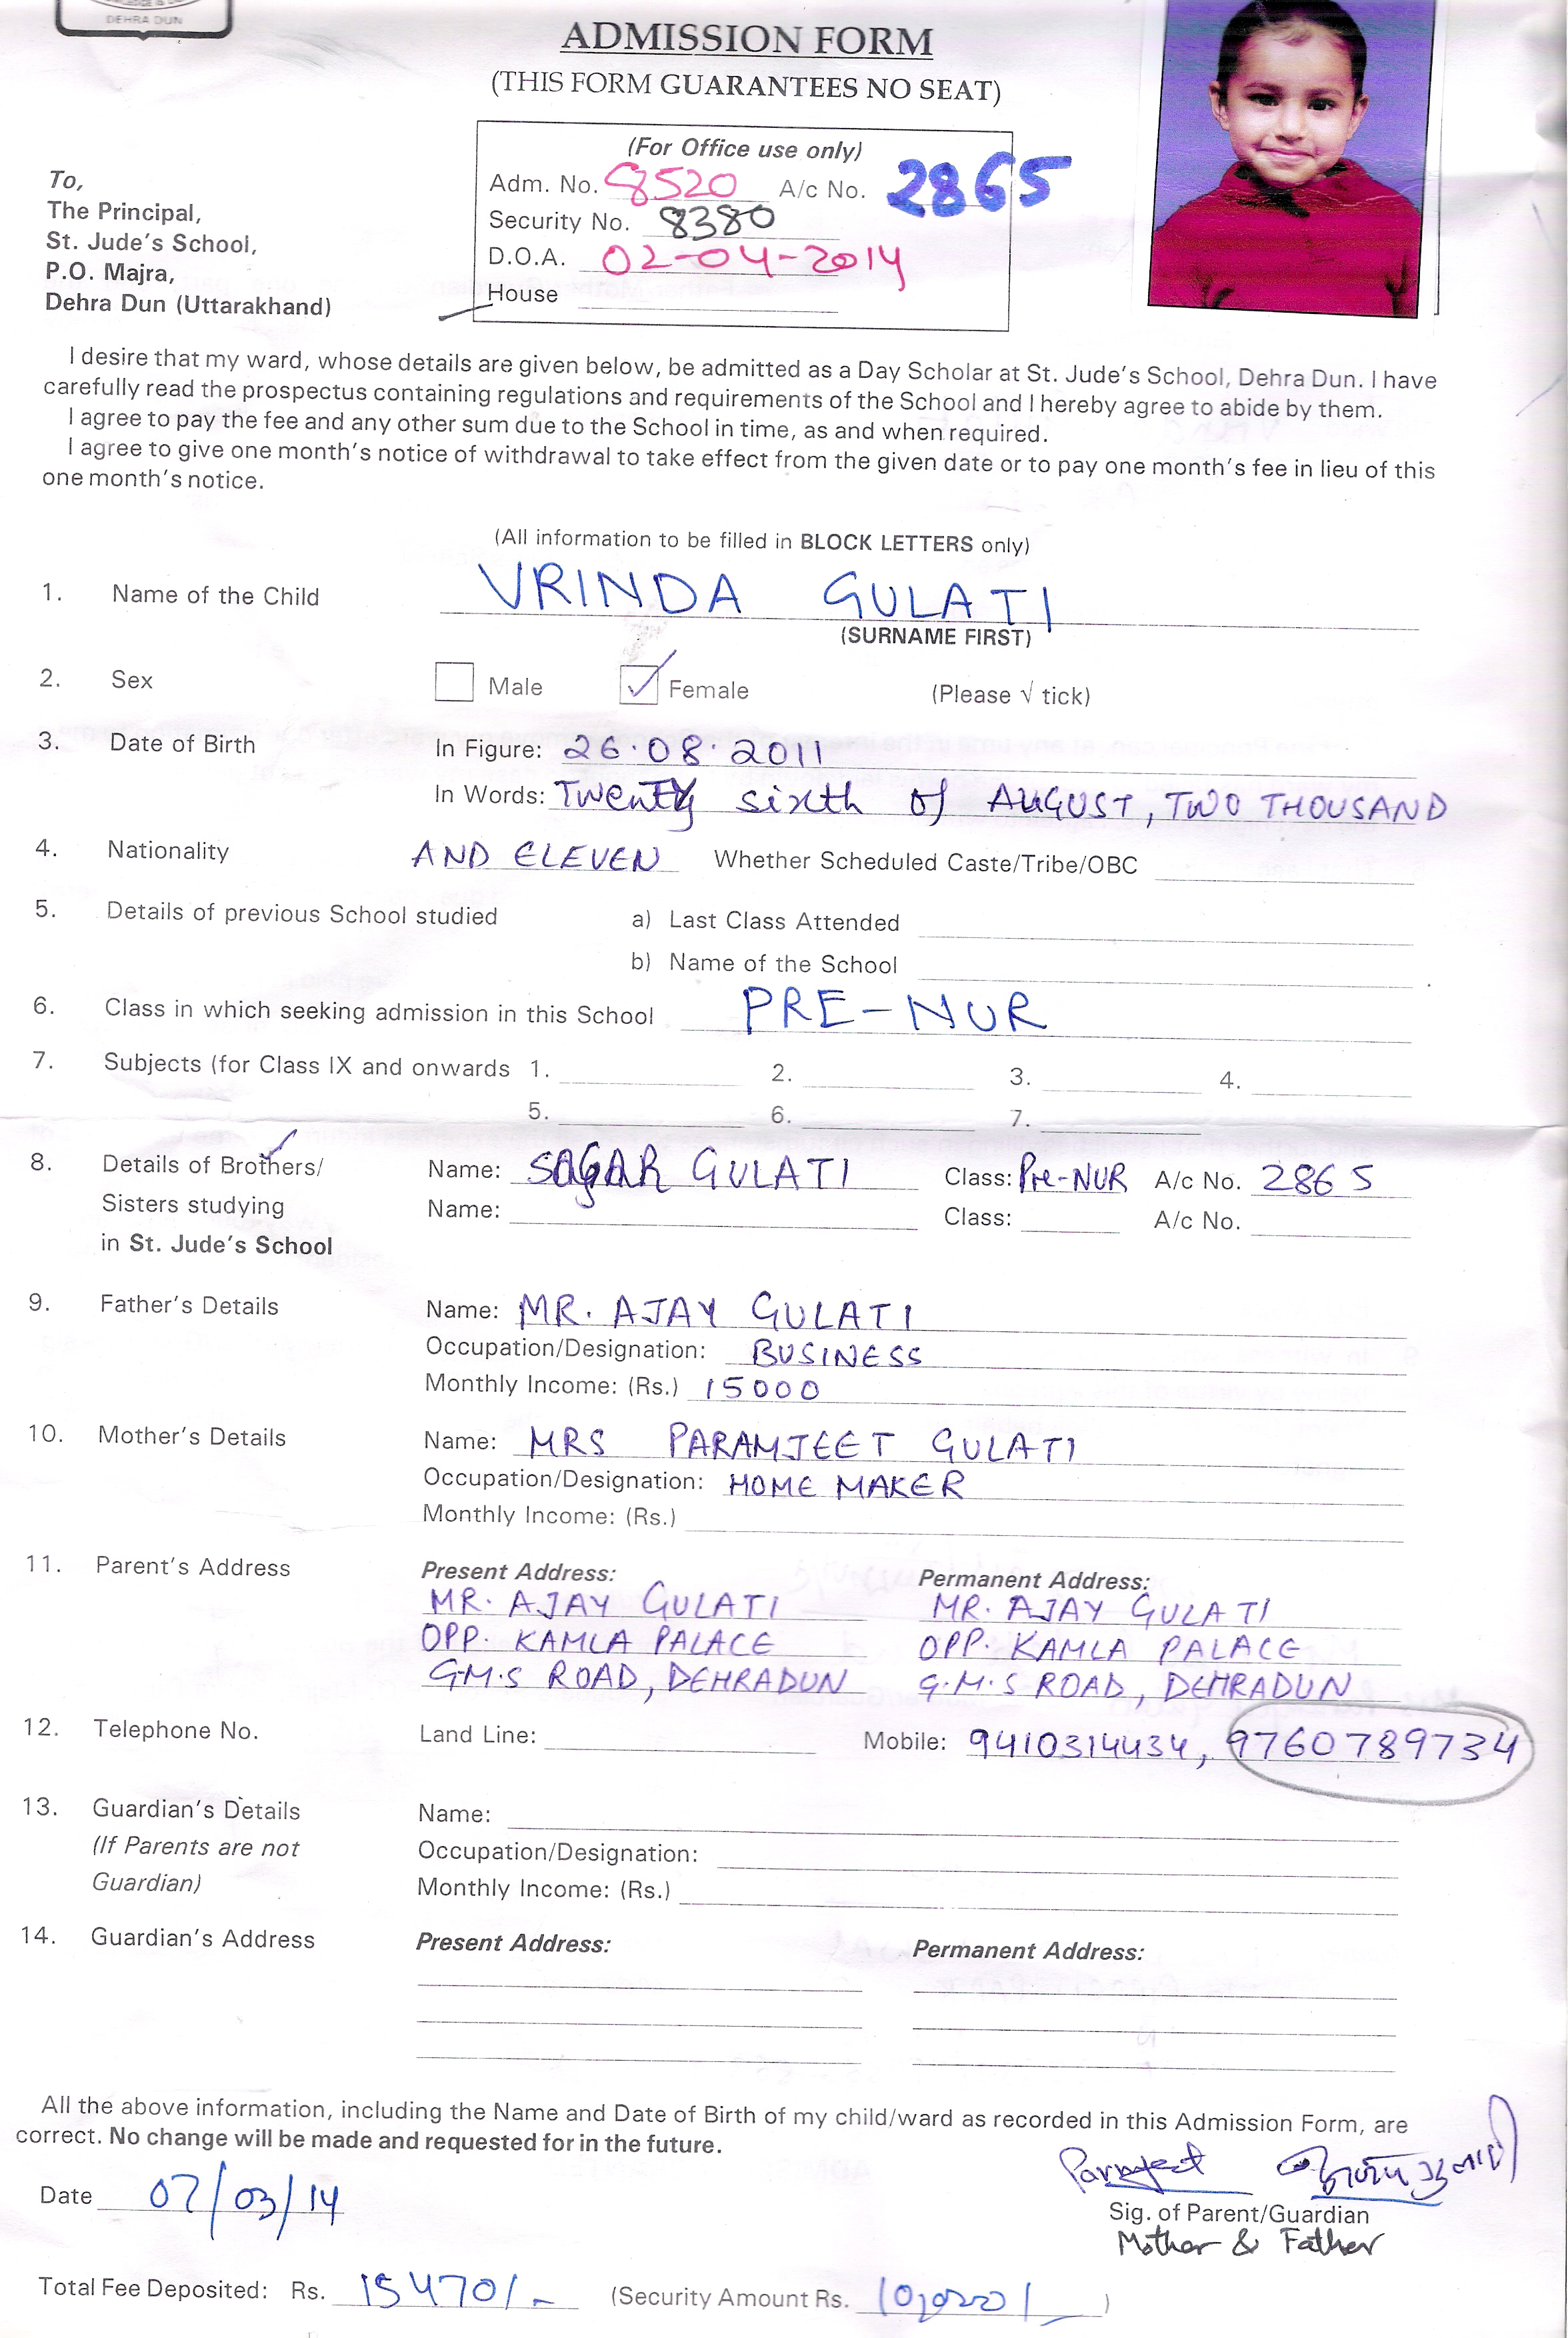 DEHRA DUN
ADMISSION FORM
(THIS FORM GUARANTEES NO SEAT)
(For Office use only)
Adm. No. 8520 A/c No. 2865
Security No. 8380
D.O.A. 02-04-2014
House
To,
The Principal,
St. Jude's School,
P.O. Majra,
Dehra Dun (Uttarakhand)
I desire that my ward, whose details are given below, be admitted as a Day Scholar at St. Jude's School, Dehra Dun. I have
carefully read the prospectus containing regulations and requirements of the School and I hereby agree to abide by them.
I agree to pay the fee and any other sum due to the School in time, as and when required.
I agree to give one month's notice of withdrawal to take effect from the given date or to pay one month's fee in lieu of this
one month's notice.
(All information to be filled in BLOCK LETTERS only)
1. Name of the Child VRINDA GULATI
(SURNAME FIRST)
2. Sex Male ✓ Female (Please √ tick)
3. Date of Birth In Figure: 26.08.2011
In Words: Twenty sixth of AUGUST, TWO THOUSAND
4. Nationality AND ELEVEN Whether Scheduled Caste/Tribe/OBC
5. Details of previous School studied a) Last Class Attended
b) Name of the School
6. Class in which seeking admission in this School PRE-NUR
7. Subjects (for Class IX and onwards 1. 2. 3. 4.
5. 6. 7.
8. Details of Brothers/ Name: SAGAR GULATI Class: Pre-NUR A/c No. 2865
Sisters studying Name: Class: A/c No.
in St. Jude's School
9. Father's Details Name: MR. AJAY GULATI
Occupation/Designation: BUSINESS
Monthly Income: (Rs.) 15000
10. Mother's Details Name: MRS PARAMJEET GULATI
Occupation/Designation: HOME MAKER
Monthly Income: (Rs.)
11. Parent's Address Present Address: Permanent Address:
MR. AJAY GULATI MR. AJAY GULATI
OPP. KAMLA PALACE OPP. KAMLA PALACE
G.M.S ROAD, DEHRADUN G.M.S ROAD, DEHRADUN
12. Telephone No. Land Line: Mobile: 9410314434, 9760789734
13. Guardian's Details Name:
(If Parents are not Occupation/Designation:
Guardian) Monthly Income: (Rs.)
14. Guardian's Address Present Address: Permanent Address:
All the above information, including the Name and Date of Birth of my child/ward as recorded in this Admission Form, are
correct. No change will be made and requested for in the future.
Date 07/03/14
Sig. of Parent/Guardian
Mother & Father
Total Fee Deposited: Rs. 15470/- (Security Amount Rs. 10,000/-)